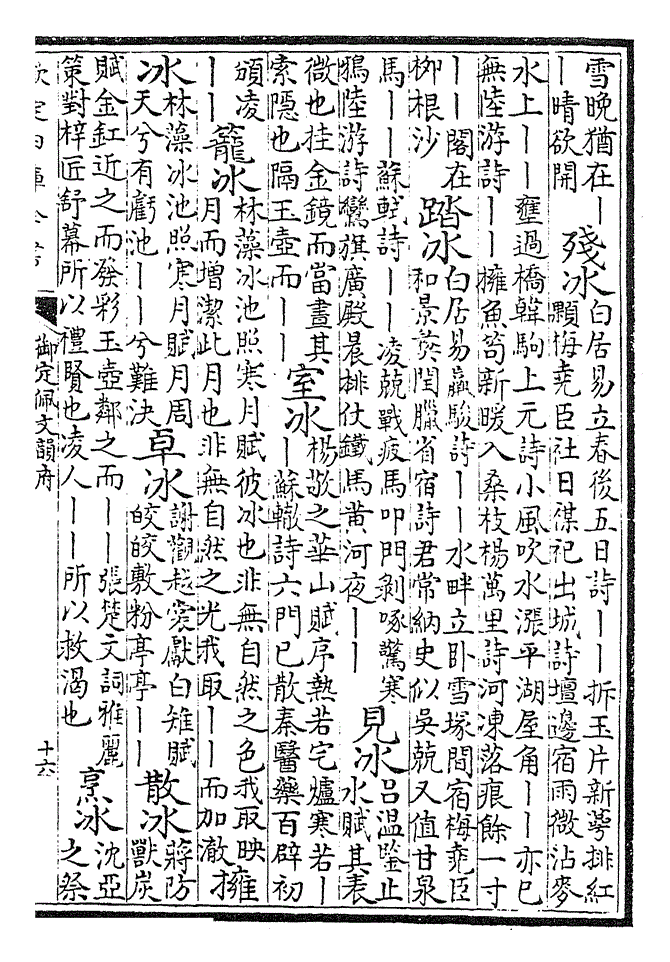 雪晚猶在丨
丨晴欲開
殘冰
白居易立春後五日詩丨丨拆玉片新萼排紅
顆梅堯臣社日禖祀出城詩壇邊宿雨微沾麥
水上丨丨壅過橋韓駒上元詩小風吹水漲平湖屋角丨丨亦已
無陸游詩丨丨擁魚笱新暖入桑枝楊萬里詩河凍落痕餘一寸
丨丨閣在
栁根沙
踏冰
白居易羸駿詩丨丨水畔立卧雪塚間宿梅堯臣
和景彝閏臘省宿詩君常納史似吳兢又值甘泉
馬丨丨蘇軾詩丨丨凌兢戰疲馬叩門剥啄驚寒
鵶陸游詩鸞旗廣殿晨排仗鐵馬黃河夜丨丨
見冰
吕温鑒止
水賦其表
微也挂金鏡而當晝其
索隱也隔玉壺而丨丨
室冰
楊敬之華山賦序熱若宅爐寒若丨
丨蘇轍詩六門已散秦醫藥百辟初
頒凌
丨丨
籠冰
林藻冰池照寒月賦彼冰也非無自然之色我取映
月而增潔此月也非無自然之光我取丨丨而加澈
擁
冰
林藻冰池照寒月賦月周
天兮有虧池丨丨兮難決
卓冰
謝觀越裳獻白雉賦
皎皎敷粉亭亭丨丨
散冰
蔣防
獸炭
賦金釭近之而發彩玉壺鄰之而丨丨張楚文詞雅麗
策對梓匠舒幕所以禮賢也凌人丨丨所以救渴也
烹冰
沈亞
之祭
欽定四庫全書
御定佩文韻府
十六